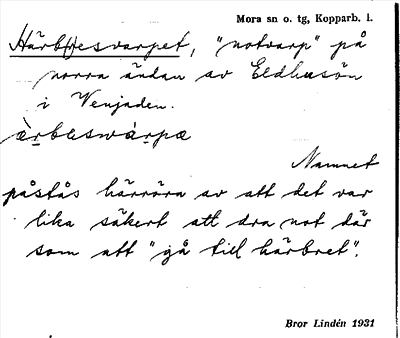 Mora sn o. tg, Kopparb. l.
Härb(r)esvarpet, "notvarp" på
norra ändan av Eldhusön
i Venjaden.
ærbäswàrpæ
Namnet
påstås härröra av att det var
lika säkert att dra not där
som att "gå till härbret".
Bror Lindén 1931